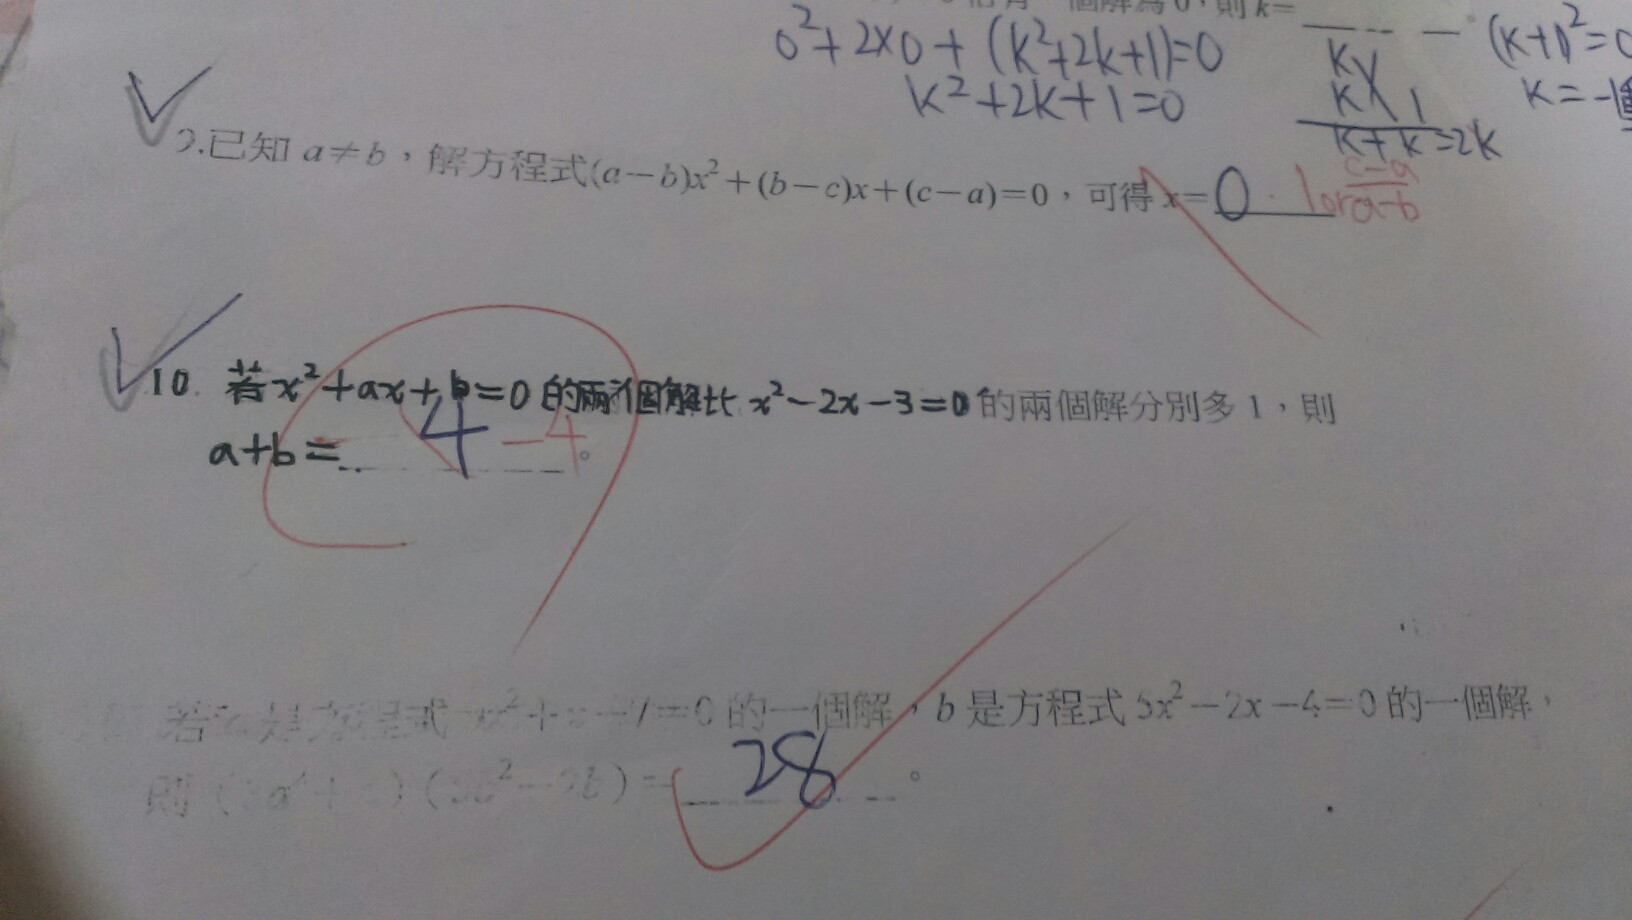 個解為0,則k=
0²+2×0+(k²+2k+1)=0
k²+2k+1=0
k 1
k 1
k+k=2k
(k+1)²=0
k=-1
9.已知a≠b,解方程式(a-b)x²+(b-c)x+(c-a)=0,可得x=0 1or c-a/a-b
10. 若x²+ax+b=0的兩個解比x²-2x-3=0的兩個解分別多1,則
a+b= 4 -4。
若 是方程式 ²+ -7=0的一個解,b是方程式5x²-2x-4=0的一個解,
則( a²+ )( b²-2b)=28。